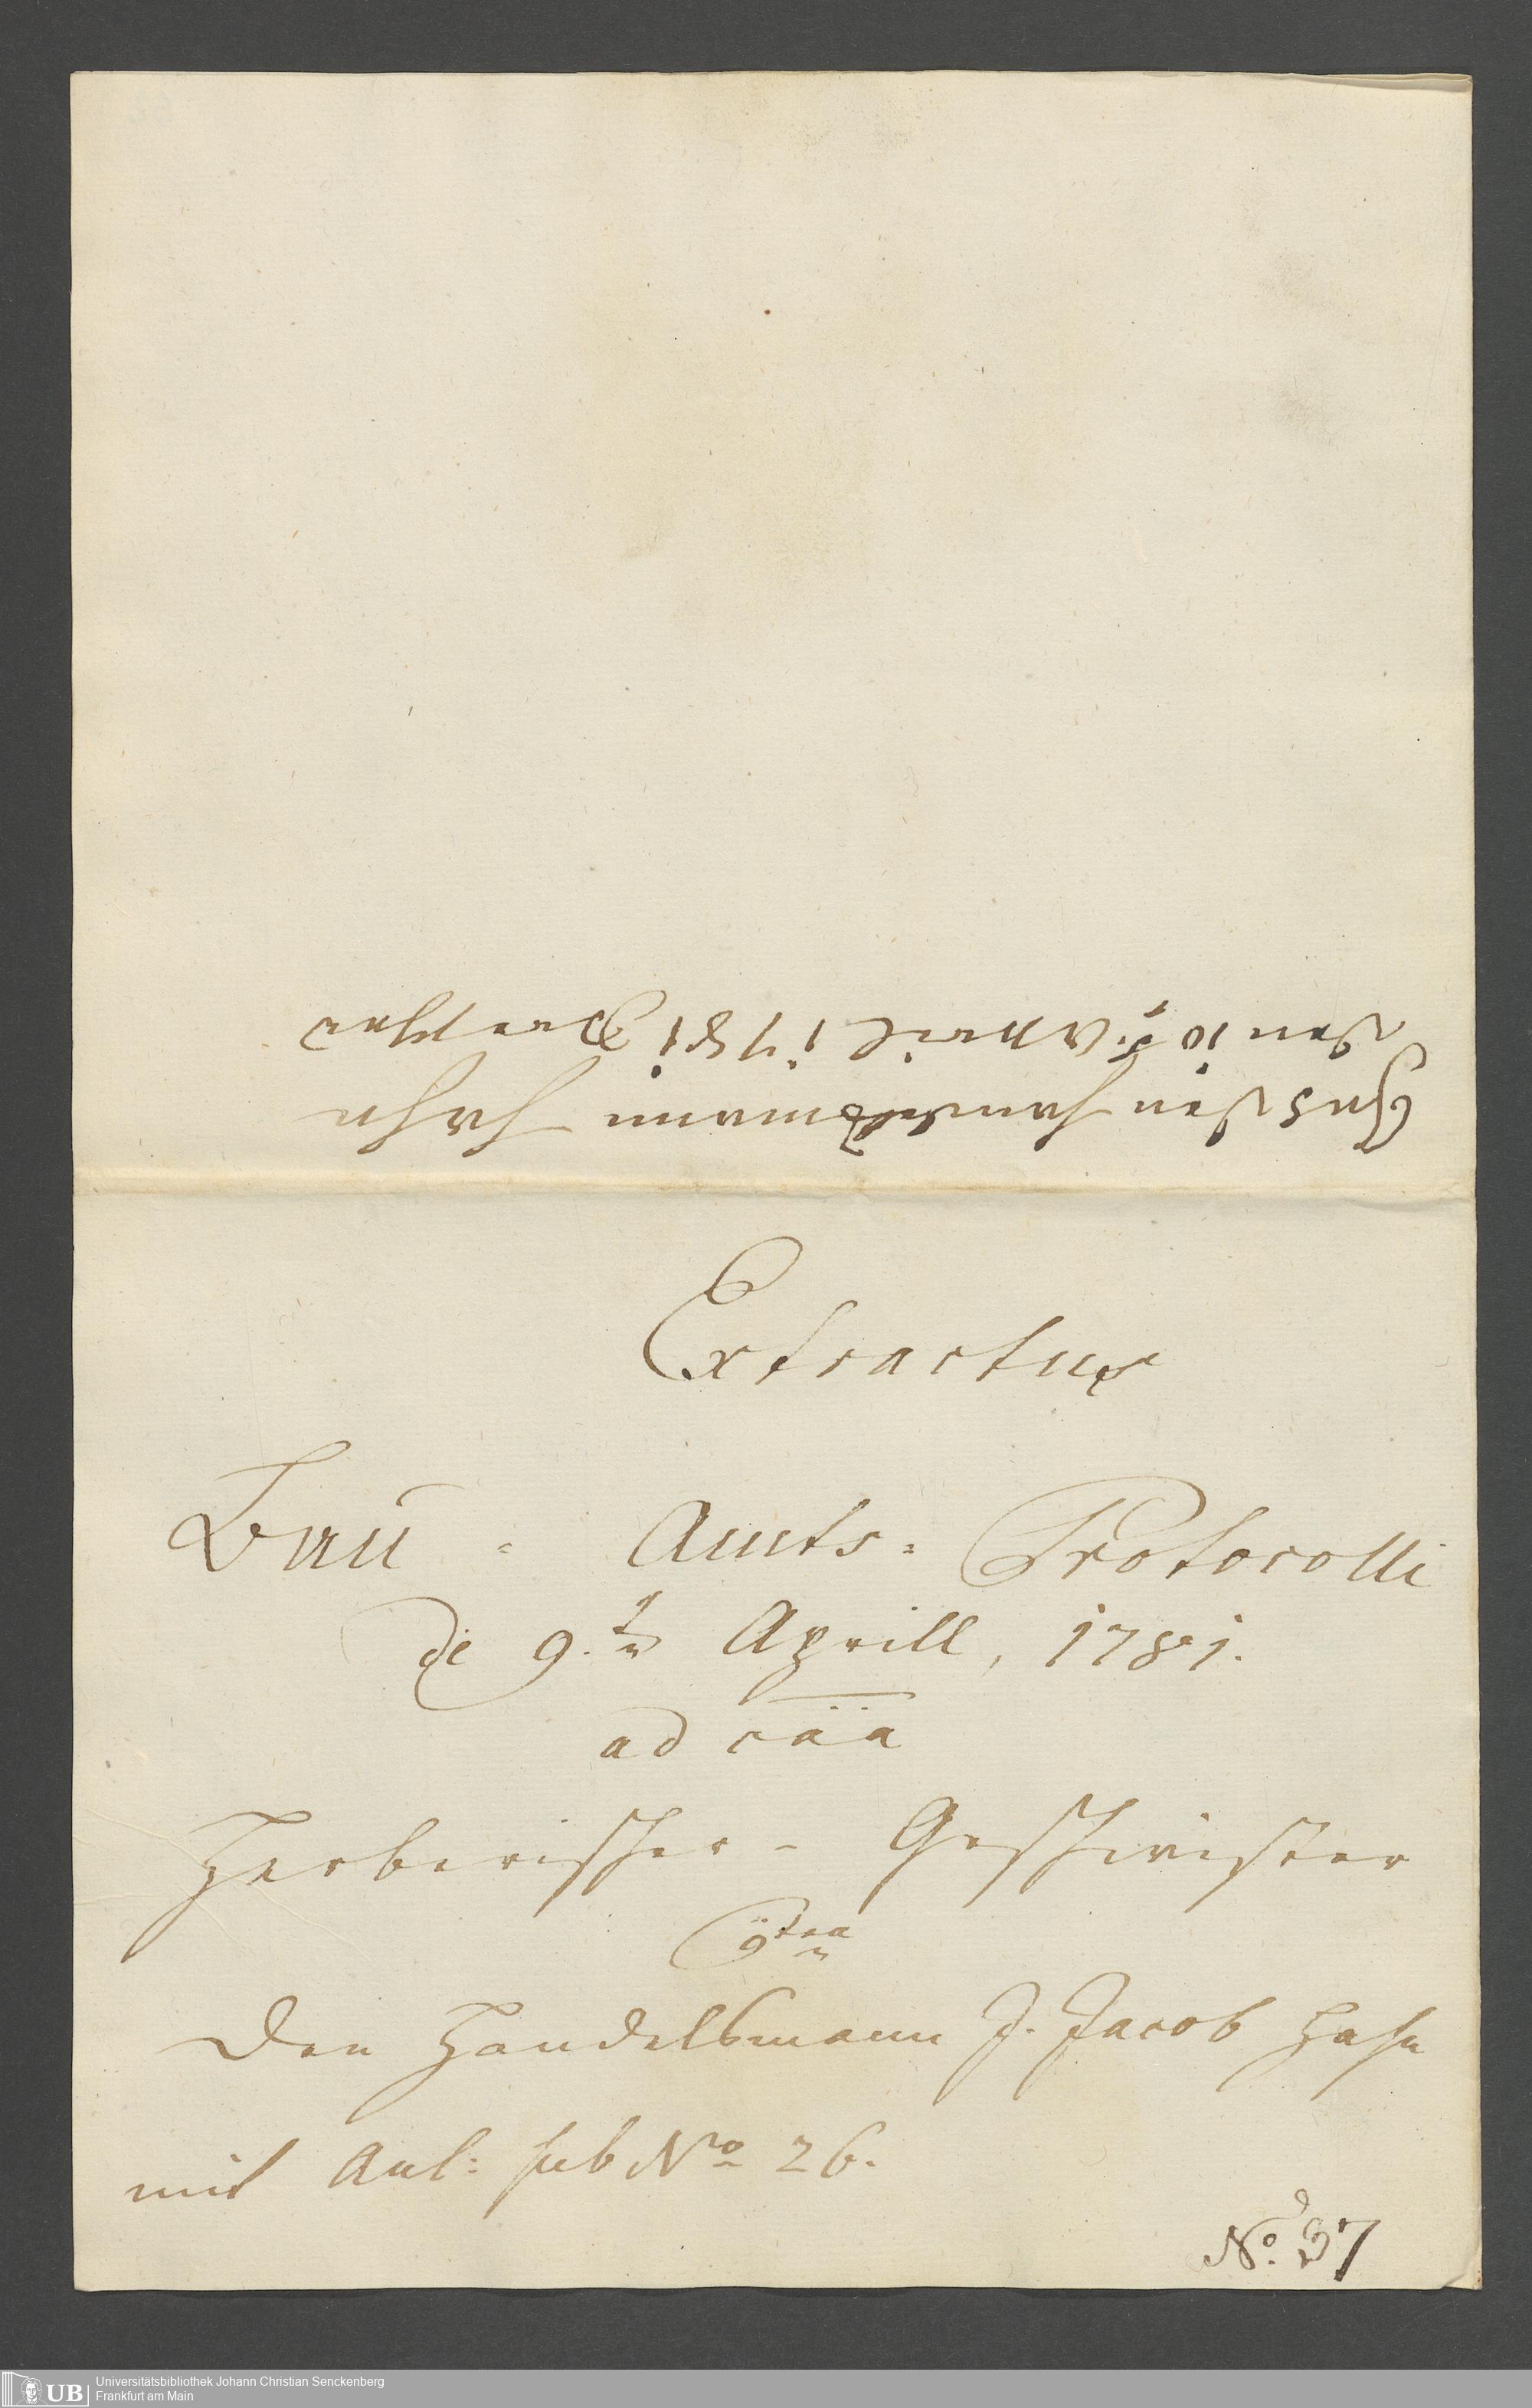 den Handelsmann Hahn
den 10t April 1781
Extractus
Bau - Amts - Protocolli
de 9.ten Aprill, 1781.
ad caa
Herberischer - Geschwister
Ctra
den Handelsmann J. Jacob Hahn
mit Anl: sub No 26.
No. 37
UB
Universitätsbibliothek Johann Christian Senckenberg
Frankfurt am Main